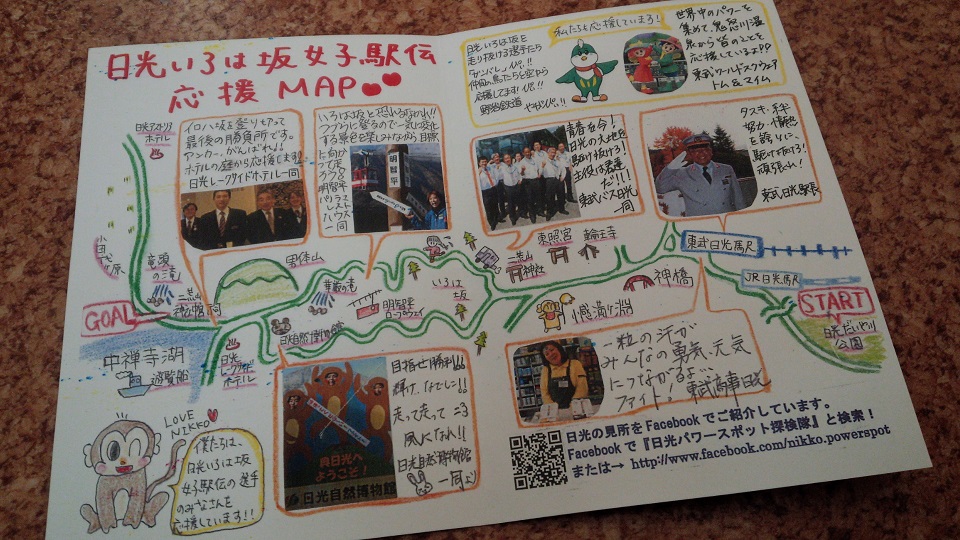 日光いろは坂女子駅伝
応援MAP
日光いろは坂を
走り抜ける選手たち
仲間の鳥たちと空から
応援してますぴょ!!
私たちも応援しています!
世界中のパワーを
集めて、鬼怒川温
泉から皆のことを
応援しているよ♪♪
東武ワールドスクウェア
トム&マイム
日光アストリア
ホテル
イロハ坂を登りきって
最後の勝負所です。
アンカー、がんばれ!!
ホテルの庭から応援します
日光レークサイドホテル一同
いろは坂と恐れるなかれ!!
明智平
パノラマ
レスト
ハウス
一同
明智平
青春を今!
日光の大地を
駆け抜けろ!
主役は君達
だ!!!
東武バス日光
一同
タスキ、絆
努力・情熱
を誇りに、
駆け抜けろ!
頑張れ!
東武日光駅長
小田代原
竜頭
の滝
二荒山
神社中宮祠
男体山
華厳の滝
明智平
ロープウェイ
いろは
坂
二荒山
神社
東照宮
輪王寺
神橋
東武日光駅
JR日光駅
START
日光だいや川
公園
GOAL
中禅寺湖
遊覧船
日光
レークサイド
ホテル
日光自然博物館
憾満ヶ淵
目指せ勝利!!!
輝け、なでしこ!!
走って走って
風になれ!!
日光自然博物館
一同
奥日光へ
ようこそ!
日光自然博物館
一粒の汗が
みんなの勇気、元気
につながるよ…
ファイト。東武商事日光
LOVE
NIKKO
僕たちは、
日光いろは坂
女子駅伝の選手
のみなさんを
応援しています!!
日光の見所をFacebookでご紹介しています。
Facebookで『日光パワースポット探検隊』と検索!
または→ http://www.facebook.com/nikko.powerspot